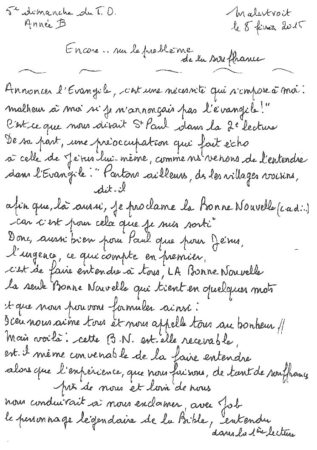 5e dimanche du T.O.
Malestroit
Année B
le 8 février 2015
Encore... sur le problème
de la souffrance
Annoncer l'Evangile, c'est une nécessité qui s'impose à moi :
malheur à moi si je n'annonçais pas l'évangile !"
C'est ce que nous disait St Paul dans la 2e lecture
De sa part, une préoccupation qui fait écho
à celle de Jésus lui-même, comme ns venons de l'entendre
dans l'Evangile : "Partons ailleurs, ds les villages voisins,
dit-il
afin que, là aussi, je proclame la Bonne Nouvelle (c.a.d.)
car c'est pour cela que je suis sorti"
Donc, aussi bien pour Paul que pour Jésus,
l'urgence, ce qui compte en premier,
c'est de faire entendre à tous, LA Bonne Nouvelle
la seule Bonne Nouvelle qui tient en quelques mots
et que nous pouvons formuler ainsi :
Dieu nous aime tous et nous appelle tous au bonheur !!
Mais voilà : cette B.N. est-elle recevable,
est-il même convenable de la faire entendre
alors que l'expérience, que nous faisons, de tant de souffrance
près de nous et loin de nous
nous conduirait à nous exclamer, avec Job
le personnage légendaire de la Bible, entendu
dans la 1ère lecture